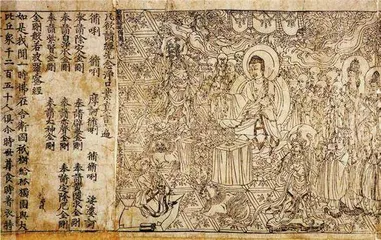 凡欲讀經先念淨口業真言一遍
脩唎 脩唎 摩訶脩唎 脩脩唎 娑婆訶
奉請除災金剛 奉請辟毒金剛 奉請黃隨求金剛
奉請白淨水金剛 奉請赤聲金剛 奉請定除災金剛
奉請紫賢金剛 奉請大神金剛
金剛般若波羅蜜經
如是我聞一時佛在舍衛國祇樹給孤獨園與大
比丘衆千二百五十人俱尒時世尊食時著衣持